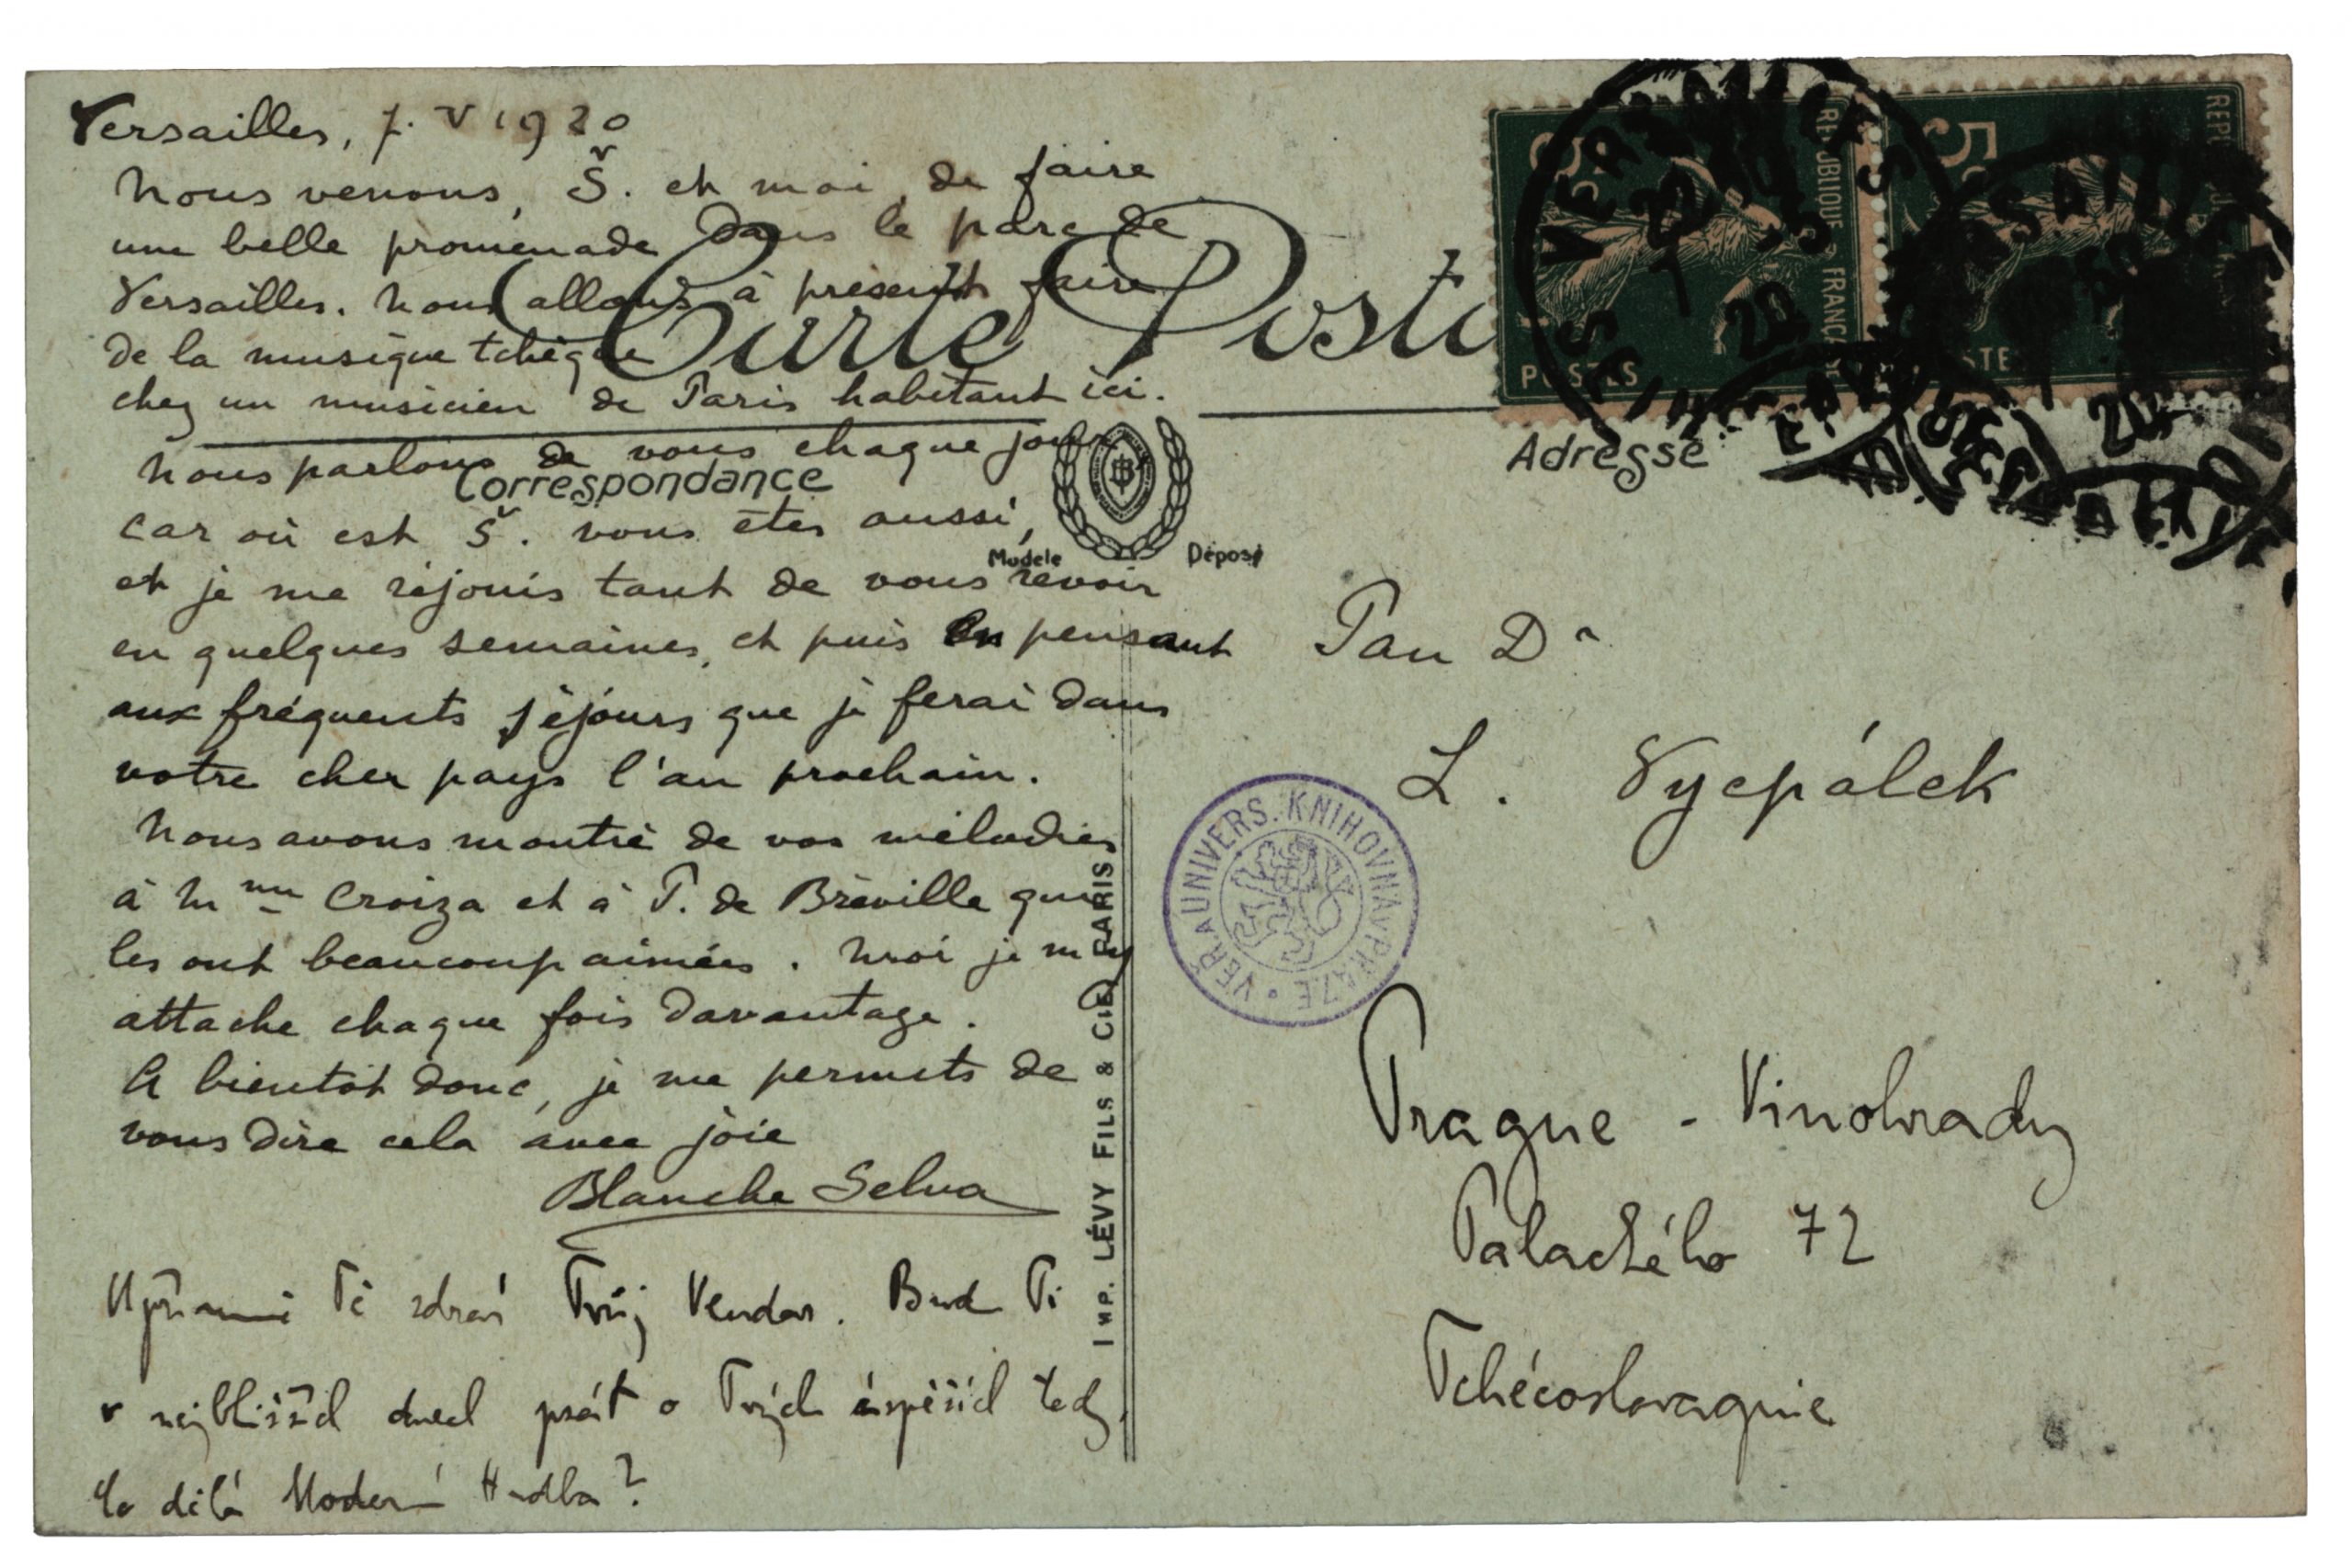 Versailles, 7. V 1920
Nous venons, Š. et moi, de faire
une belle promenade dans le parc de
Versailles. Nous allons à présent faire
de la musique tchèque
chez un musicien de Paris habitant ici.
Nous parlons de vous chaque jour
car où est Š. vous êtes aussi,
et je me réjouis tant de vous revoir
en quelques semaines, et puis en pensant
aux fréquents séjours que je ferai dans
votre cher pays l'an prochain.
Nous avons montré de vos mélodies
à Mme Croiza et à P. de Bréville qui
les ont beaucoup aimées. Moi je m'y
attache chaque fois davantage.
A bientôt donc, je me permets de
vous dire cela avec joie
Blanche Selva
Upřímně Tě zdraví Tvůj Vendas. Bud Ti
v nejbližších dnech psát o Tvých úspěších tady.
Co dělá Moderní Hudba?
Carte Posta
Correspondance
Modèle Déposé
IMP. LÉVY FILS & CIE, PARIS
REPUBLIQUE FRANÇAISE
POSTES
5
VERSAILLES
Adresse
Pan Dr
L. Vycpálek
VEŘ. A UNIVERS. KNIHOVNA V PRAZE
Prague - Vinohrady
Palackého 72
Tchécoslovaquie